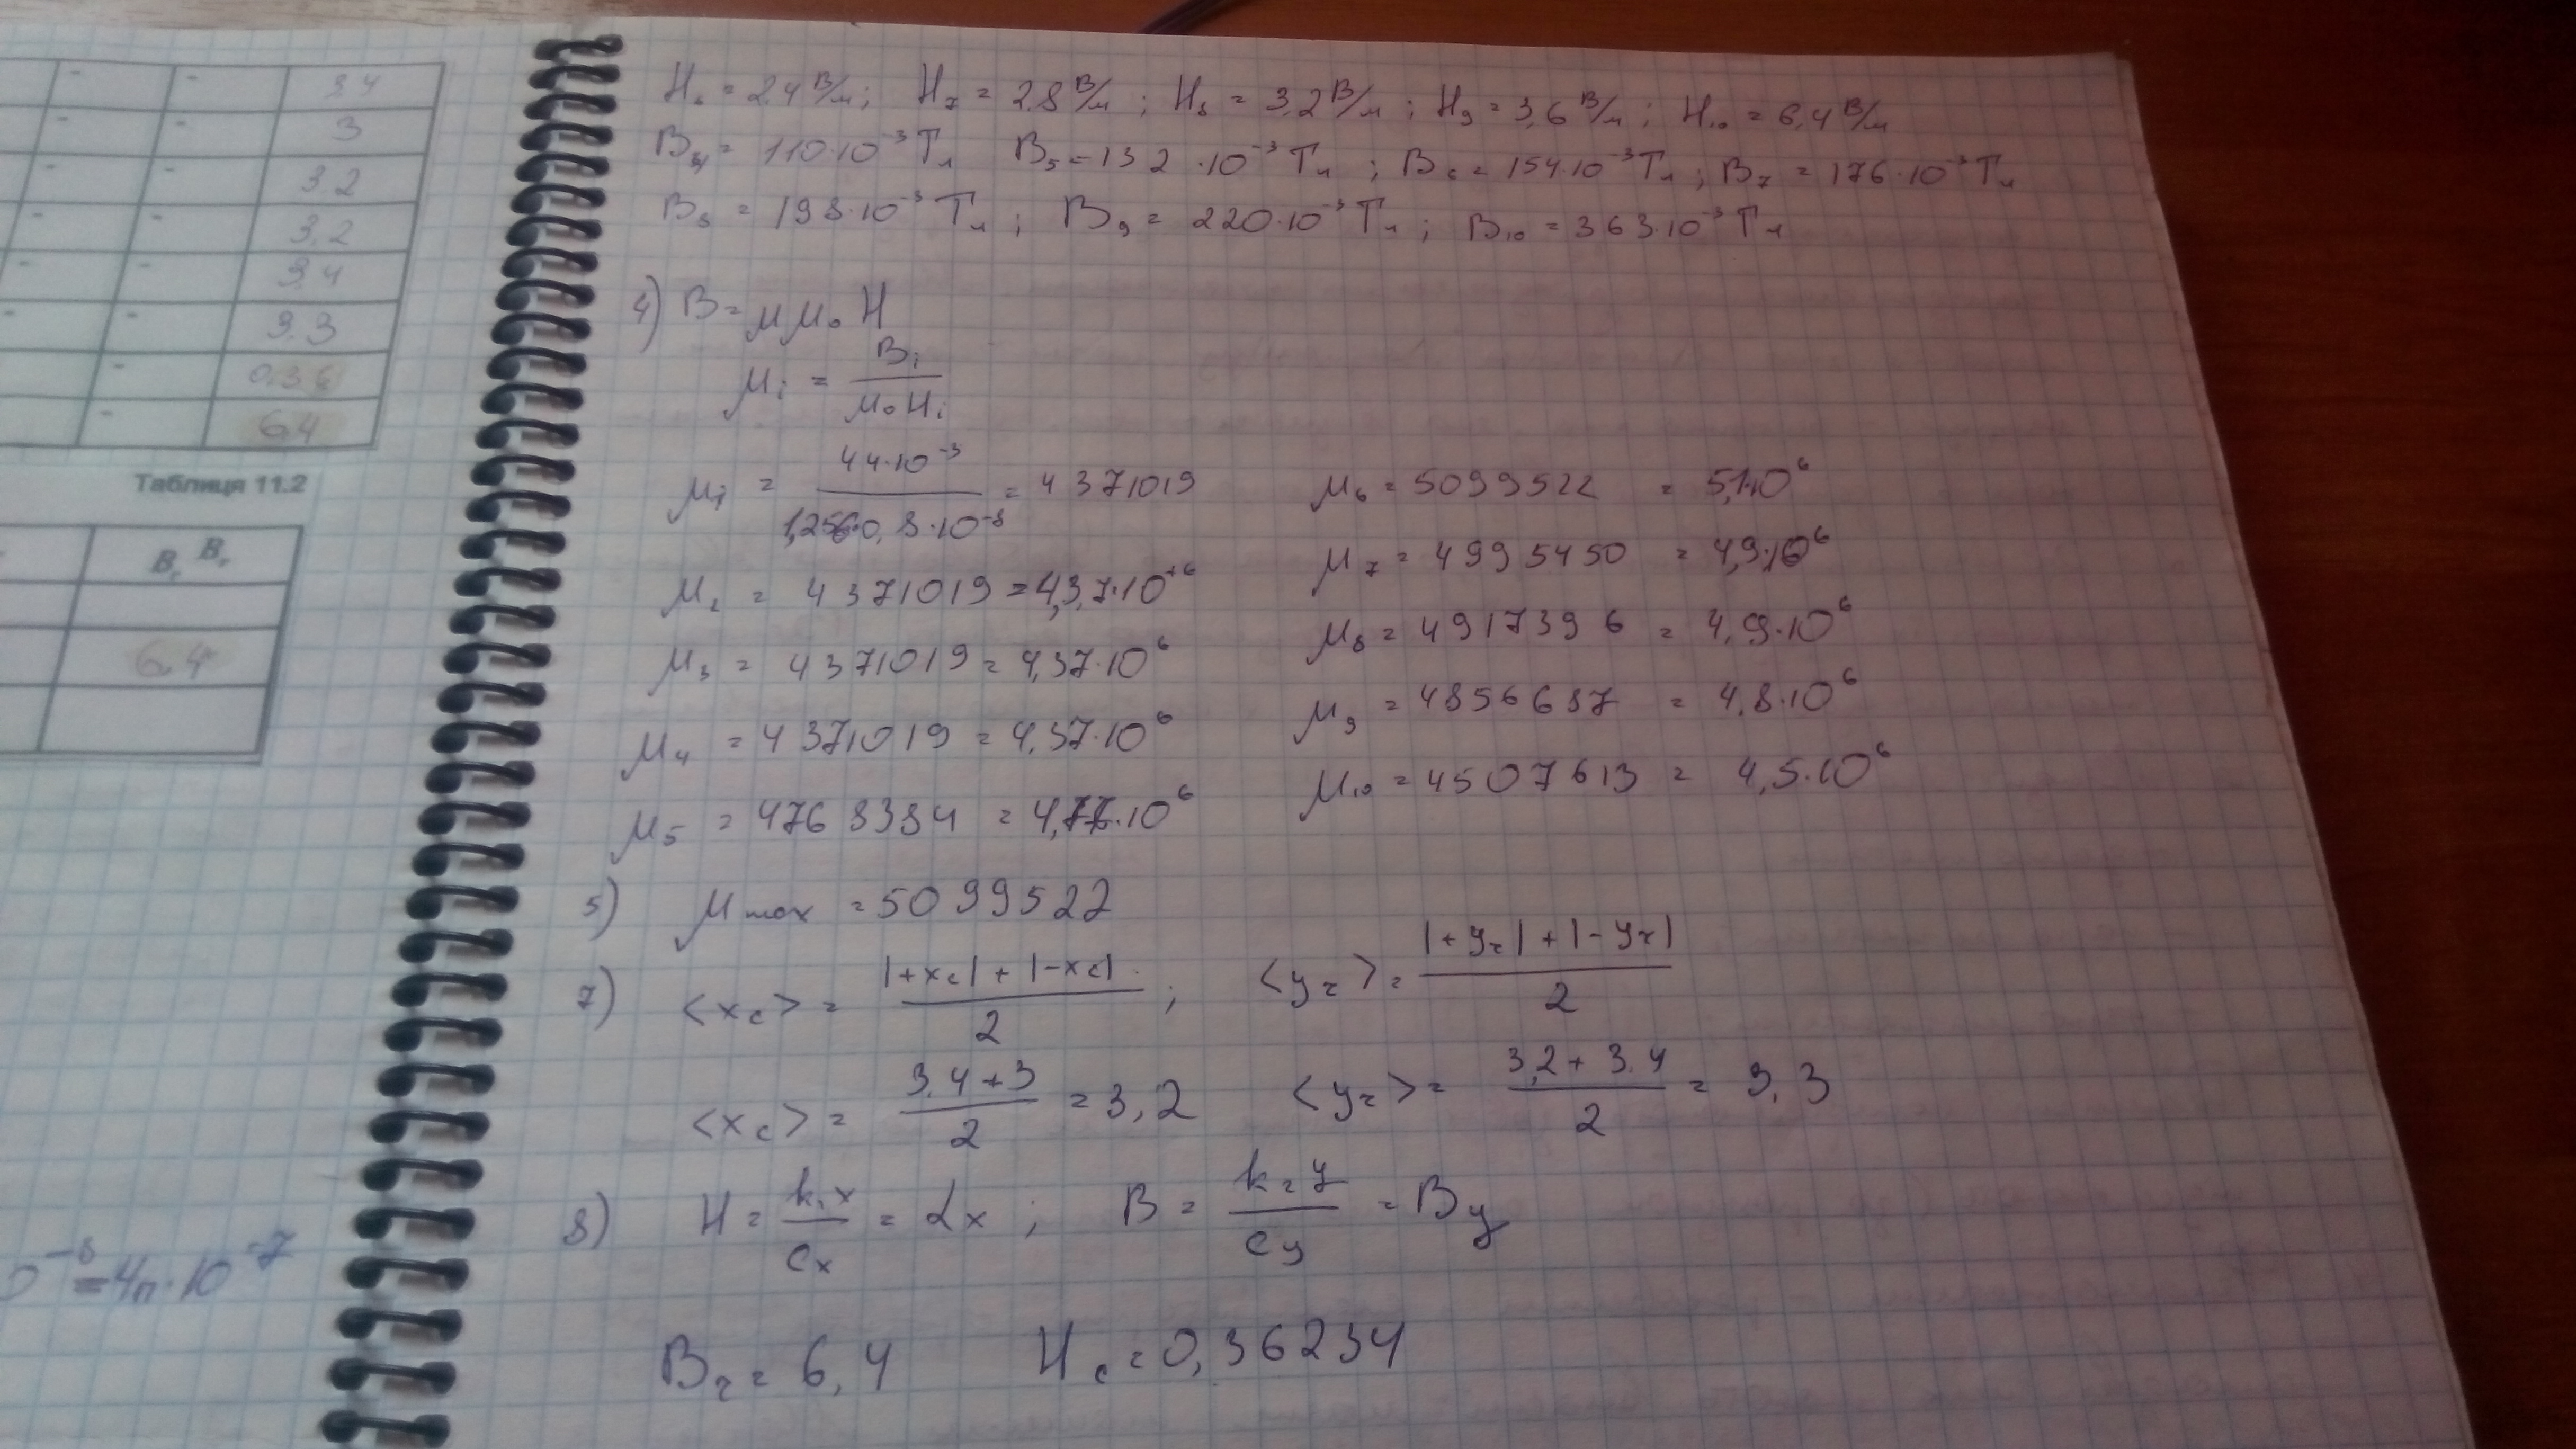 - - 3,4
- - 3
- - 3.2
- - 3,2
- - 3,4
- - 3.3
- 0,36
- 6,4
Таблиця 11.2
Bᵣ Bᵣ
6,4
= 4π·10⁻⁷
H₆ = 2,4 В/м; H₇ = 2,8 В/м; H₈ = 3,2 В/м; H₉ = 3,6 В/м; H₁₀ = 6,4 В/м
B₄ = 110·10⁻³ Тл B₅ = 132·10⁻³ Тл; B₆ = 154·10⁻³ Тл; B₇ = 176·10⁻³ Тл
B₈ = 198·10⁻³ Тл; B₉ = 220·10⁻³ Тл; B₁₀ = 363·10⁻³ Тл
4) B = μμ₀H
μᵢ = Bᵢ / μ₀Hᵢ
μ₁ = 44·10⁻³ / 1,256·0,8·10⁻⁸ = 4371019
μ₂ = 4371019 = 4,37·10⁺⁶
μ₃ = 4371019 = 4,37·10⁶
μ₄ = 4371019 = 4,37·10⁶
μ₅ = 4768384 = 4,77·10⁶
μ₆ = 5099522 = 5,1·10⁶
μ₇ = 4995450 = 4,9·10⁶
μ₈ = 4917396 = 4,9·10⁶
μ₉ = 4856687 = 4,8·10⁶
μ₁₀ = 4507613 = 4,5·10⁶
5) μ max = 5099522
7) <x_c> = |+x_c| + |-x_c| / 2; <y_r> = |+y_r| + |-y_r| / 2
<x_c> = 3,4+3 / 2 = 3,2 <y_r> = 3,2+3.4 / 2 = 3,3
8) H = k₁x / c_x = αx; B = k₂y / c_y = By
B_r = 6,4 H_c = 0,36234